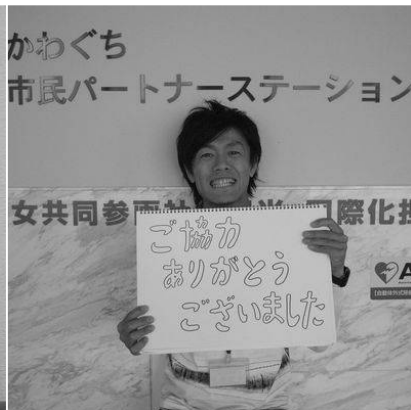 かわぐち
市民パートナーステーション
女共同参画
国際化担
ご協力
ありがとう
ございました
A